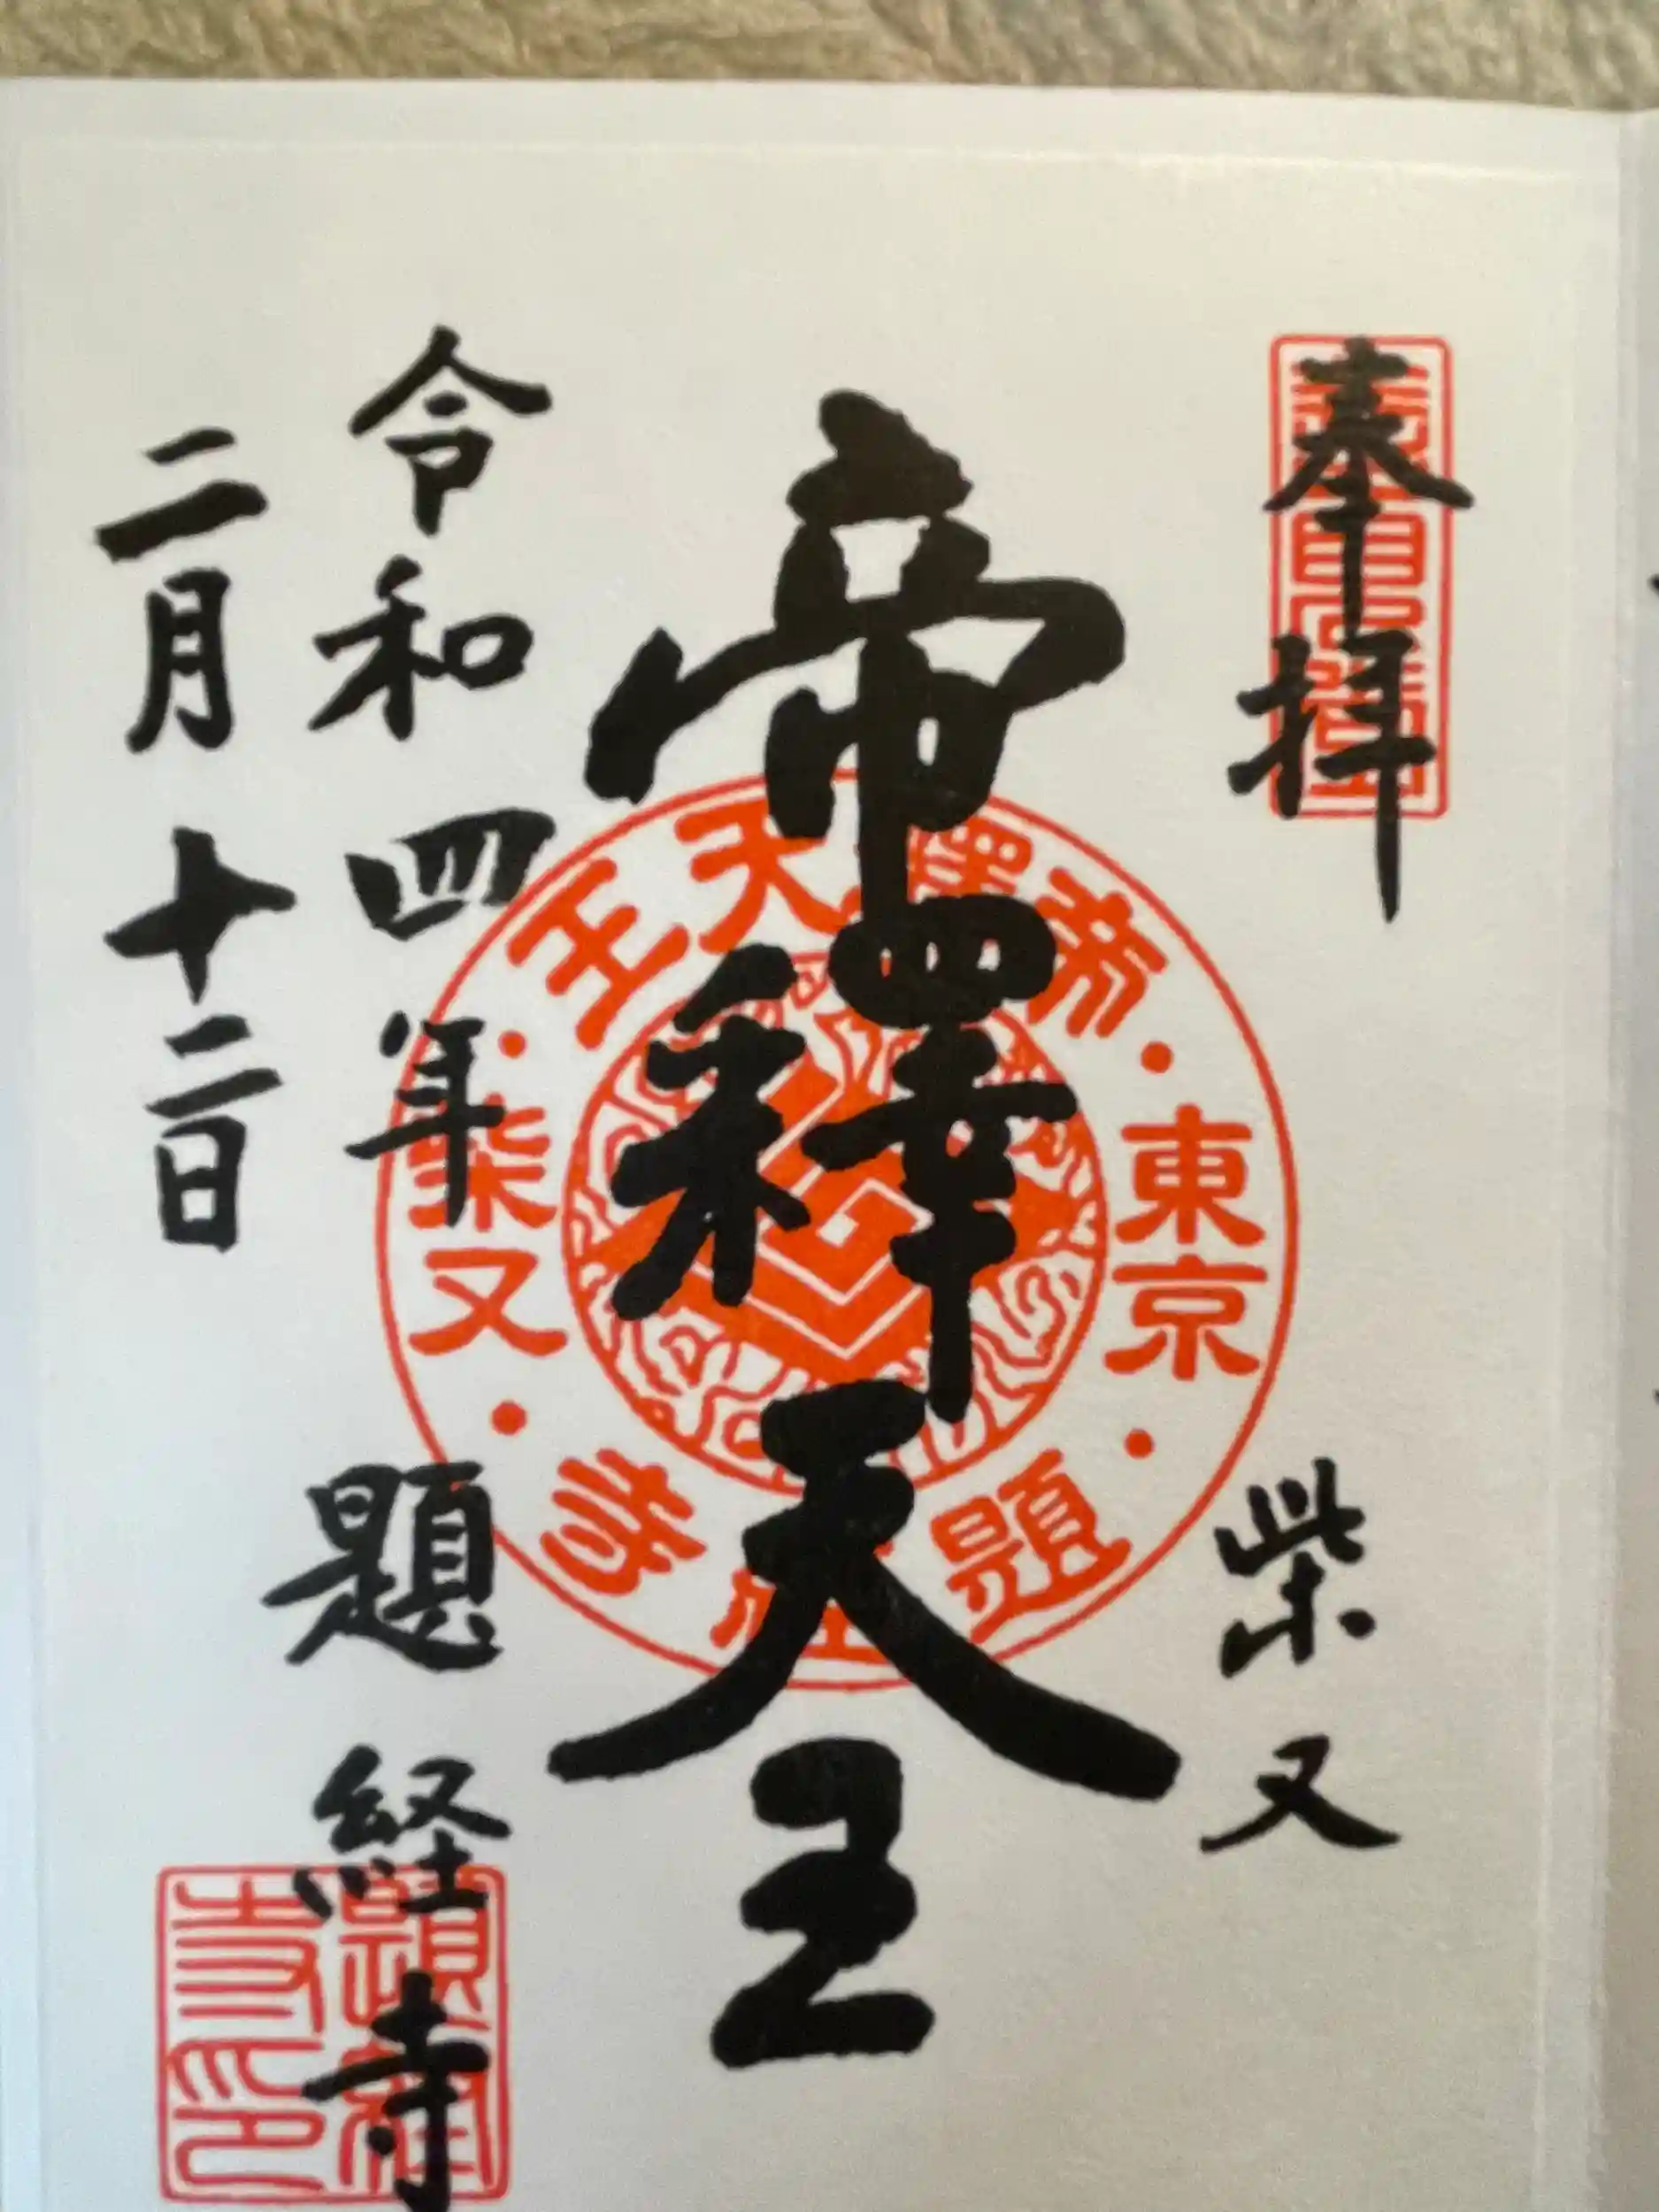 奉拝
柴又
帝釋天王
令和四年
二月十二日
題経寺
帝釋天王
東京
柴又
題経寺